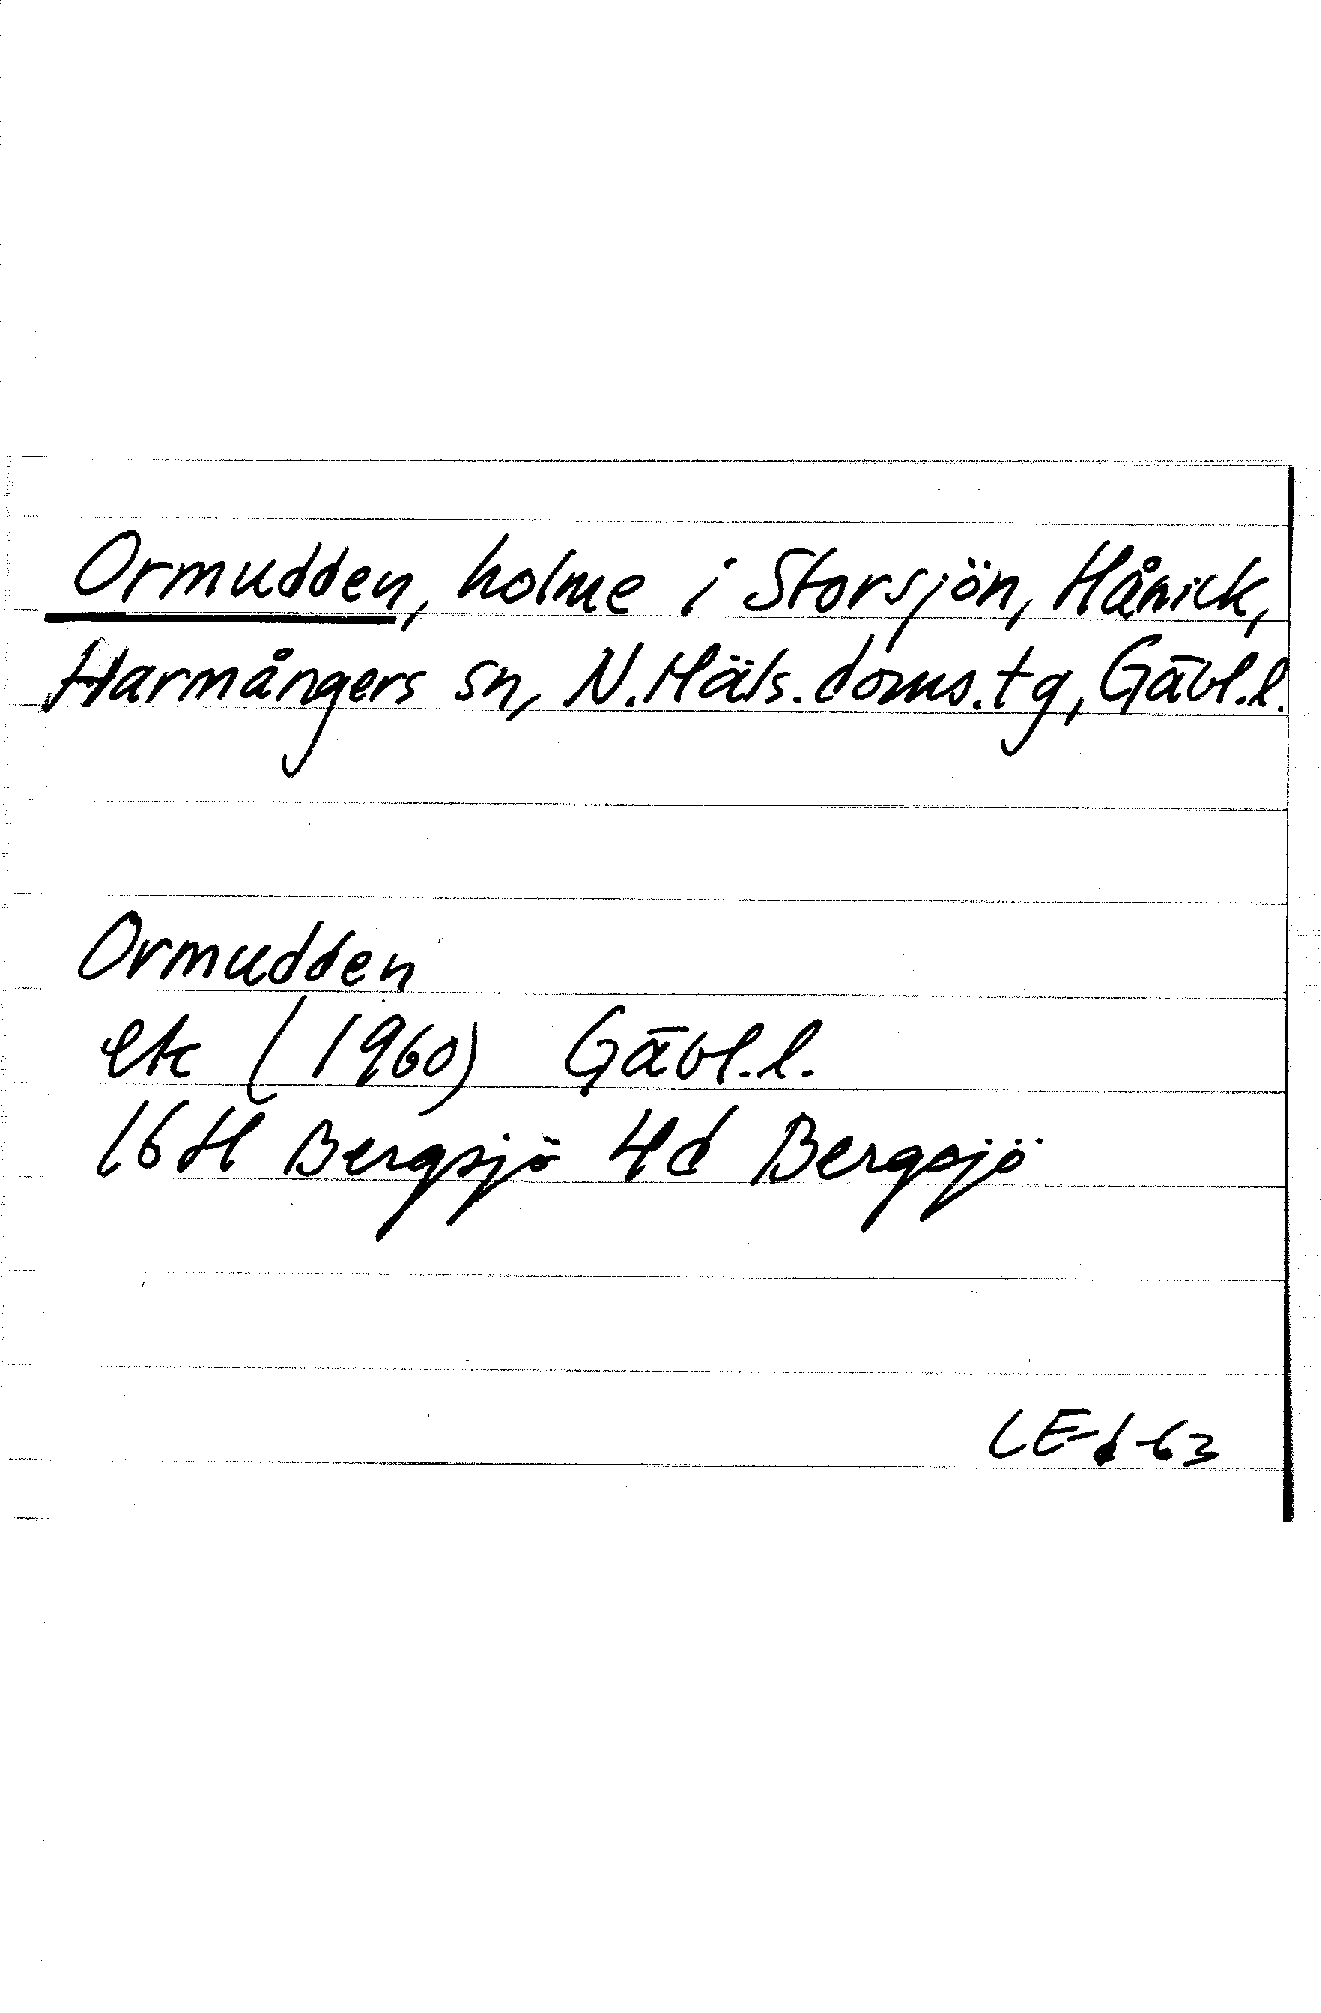 Ormudden, holme i Storsjön, Hånick,
Harmångers sn, N.Häls.doms.tg, Gävl.l.
Ormudden
ek (1960) Gävl.l.
16H Bergsjö 4d Bergsjö
LE-d-63